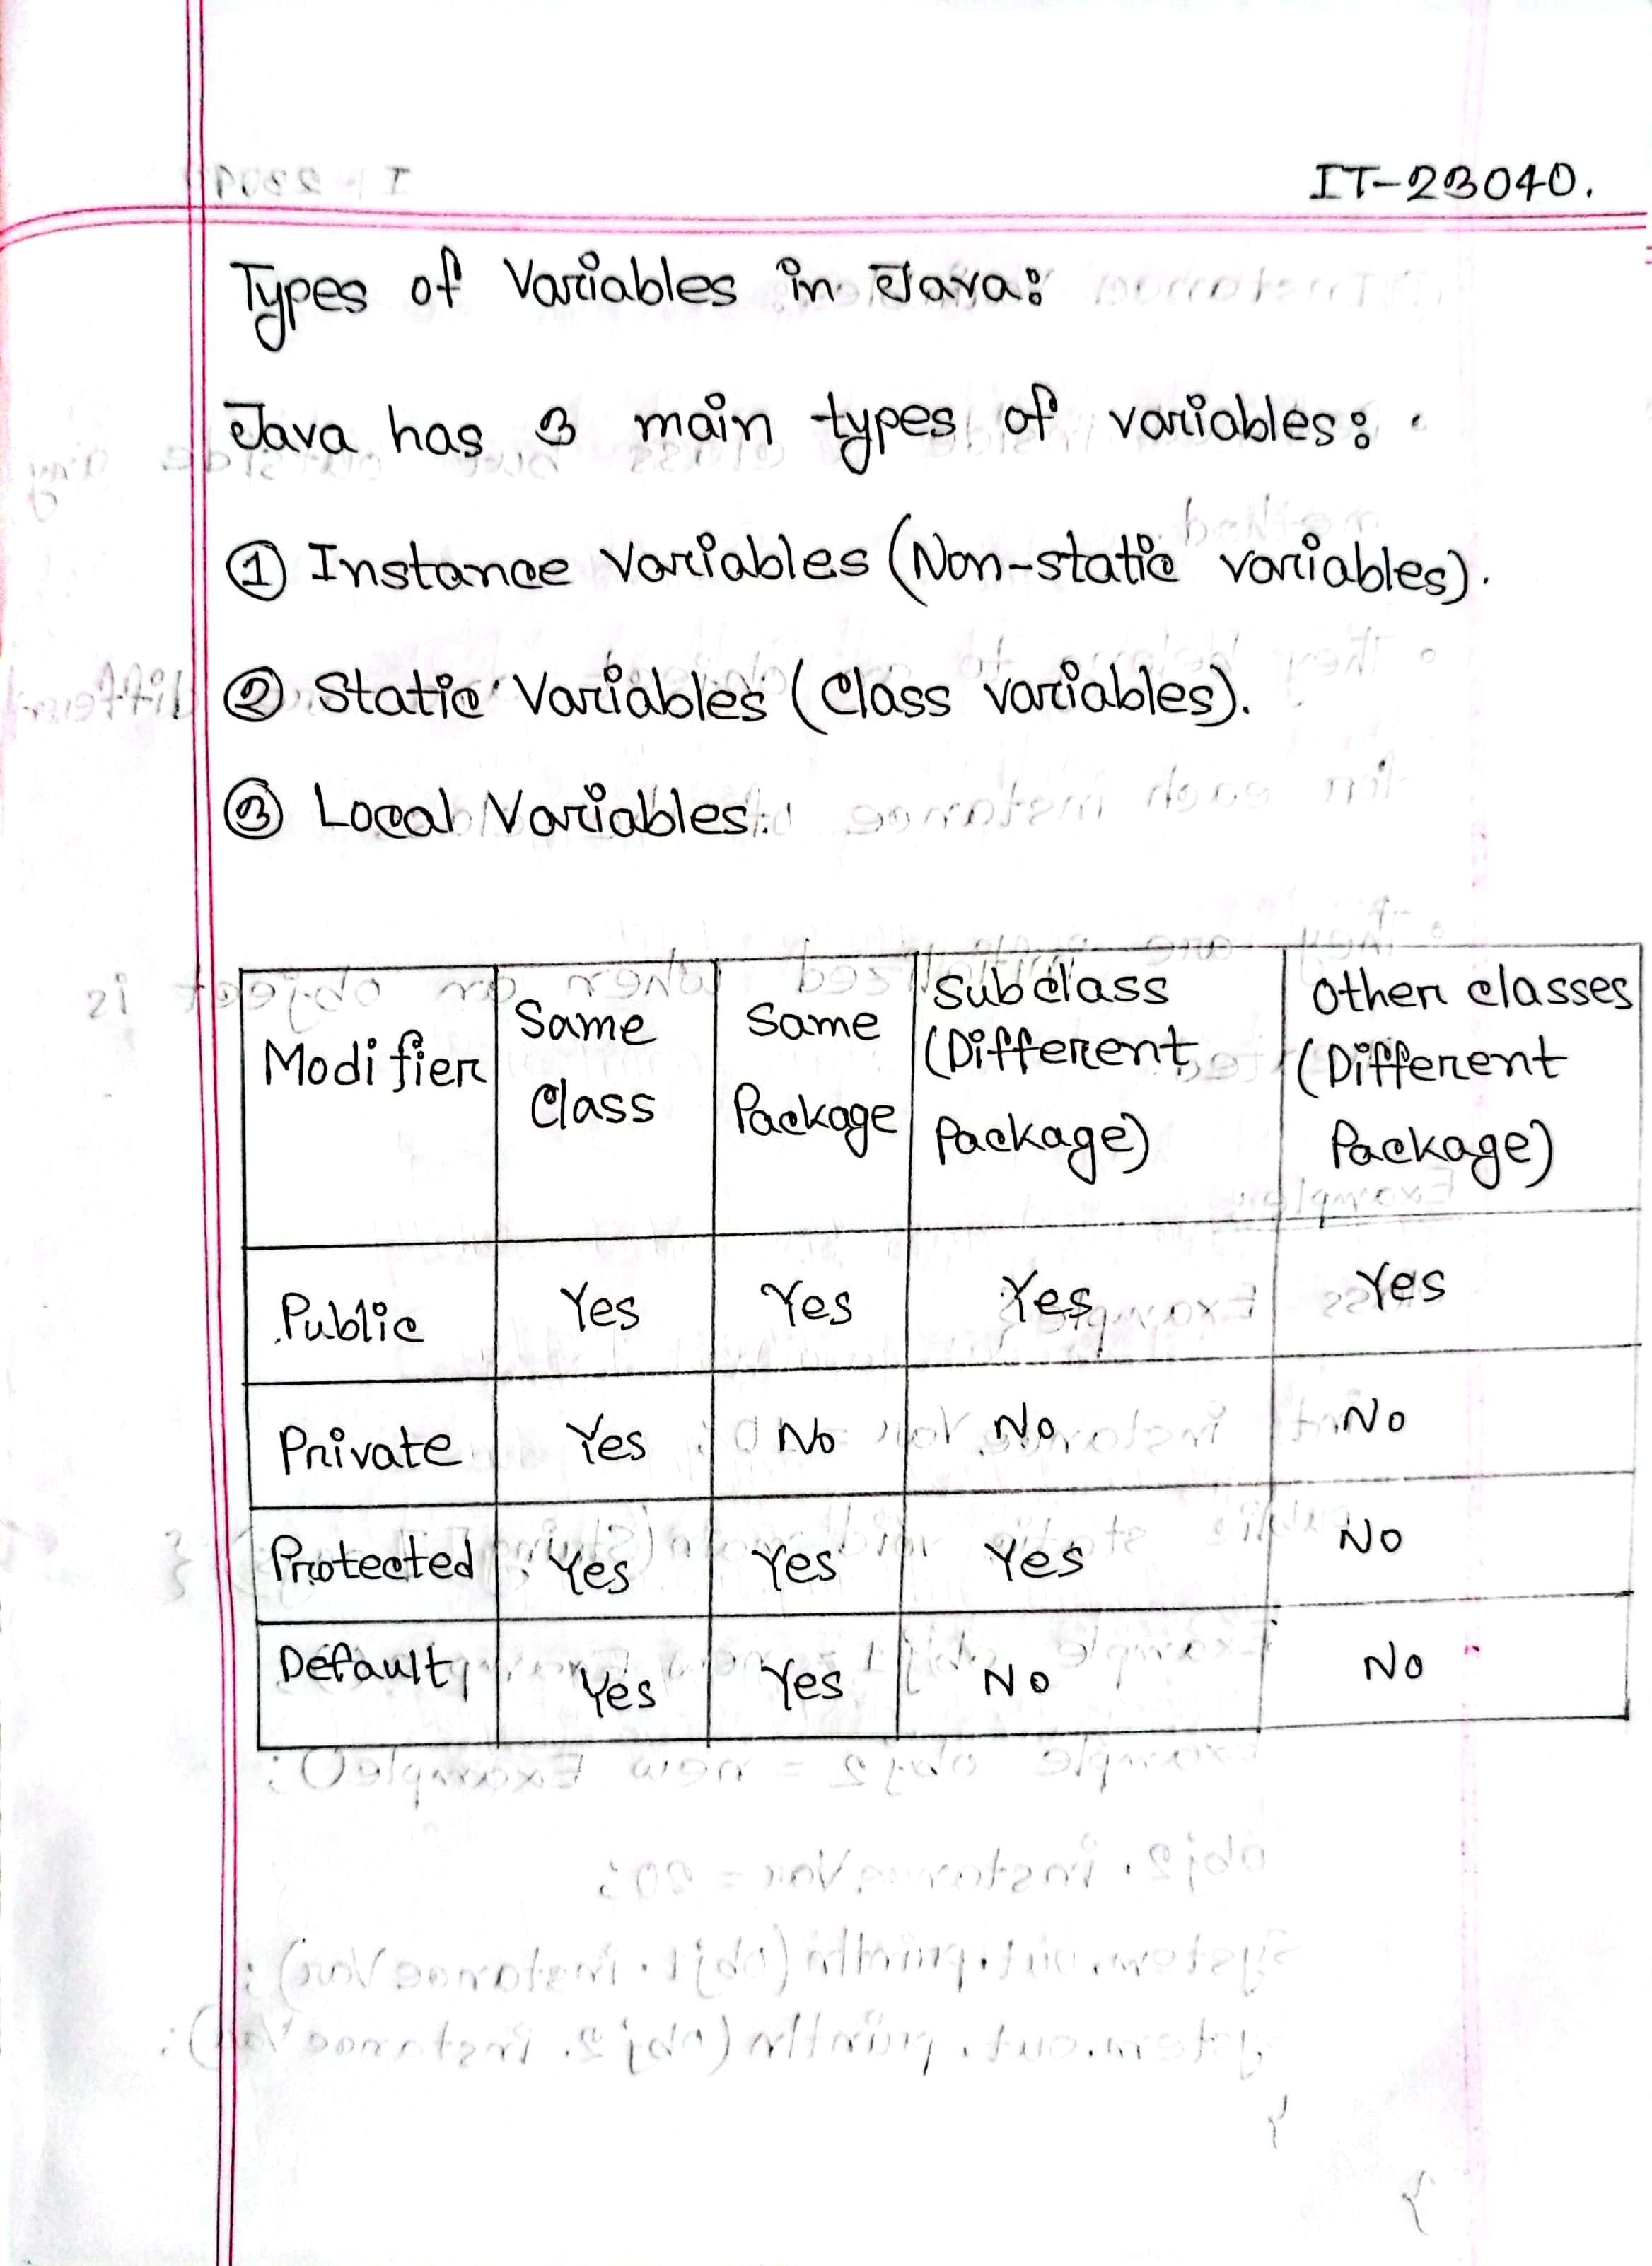 IT-23040.
Types of Variables in Java:
Java has 3 main types of variables:
① Instance Variables (Non-static variables).
② Static Variables (Class variables).
③ Local Variables.
Modifier | Same Class | Same Package | Subclass (Different Package) | Other classes (Different Package)
Public | Yes | Yes | Yes | Yes
Private | Yes | No | No | No
Protected | Yes | Yes | Yes | No
Default | Yes | Yes | No | No